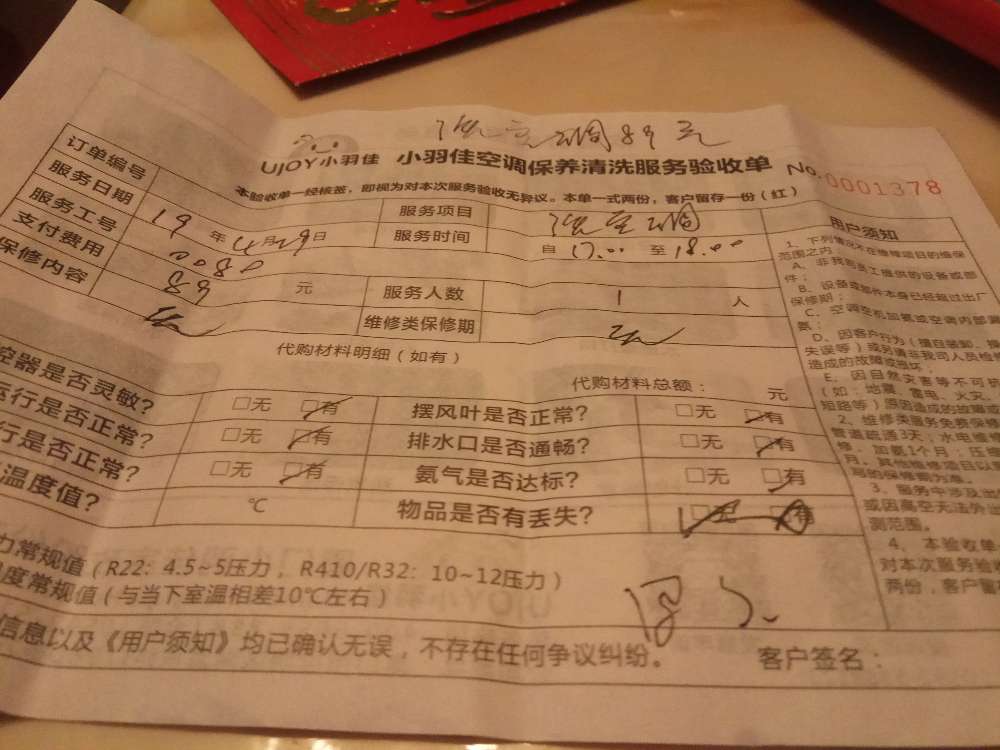 洗空调89元
UJOY小羽佳 小羽佳空调保养清洗服务验收单 No.0001378
本验收单一经核签，即视为对本次服务验收无异议。本单一式两份，客户留存一份（红）
订单编号 服务项目 洗空调
服务日期 19年4月29日 服务时间 自17.00至18.00
服务工号 0080
支付费用 89元 服务人数 1人
保修内容 维修类保修期
代购材料明细（如有） 代购材料总额： 元
控器是否灵敏？ □无 □有 摆风叶是否正常？ □无 □有
运行是否正常？ □无 □有 排水口是否通畅？ □无 □有
行是否正常？ □无 □有 氨气是否达标？ □无 □有
温度值？ ℃ 物品是否有丢失？ □无 □有
力常规值（R22：4.5~5压力，R410/R32：10~12压力）
温度常规值（与当下室温相差10℃左右）
信息以及《用户须知》均已确认无误，不存在任何争议纠纷。 客户签名：
用户须知
1、下列情况不在维修项目的维保
范围之内
A、非我司员工提供的设备或部
件；
B、设备或部件本身已经超过出厂
保修期；
C、空调空机加氨或空调内部漏
氨；
D、因客户行为（擅自装卸、操
失误等）或另请非我司人员检修
造成的故障或损坏；
E、因自然灾害等不可抗
（如：地震、雷电、火灾、
短路等）原因造成的故障或
2、维修类服务免费保修
管道疏通3天；水电维修
修、加氨1个月；压缩
月，其他维修项目以
3、服务中涉及出
或因高空无法外运
测范围。
4、本验收单
对本次服务验收
两份，客户留